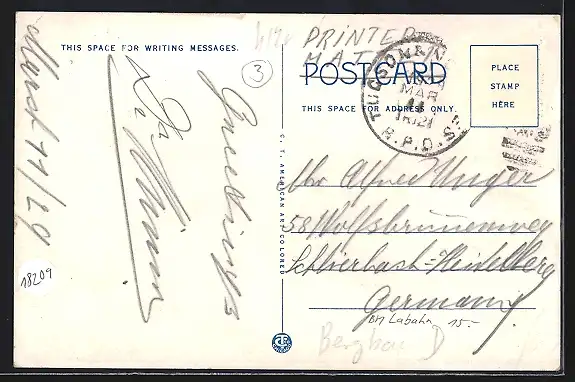 THIS SPACE FOR WRITING MESSAGES.
3
March 11/29
Greetings
18209
PRINTED
MAT
POSTCARD
THIS SPACE FOR ADDRESS ONLY.
TUCSON &
MAR
11
R.P.O.
PLACE
STAMP
HERE
Mr Alfred Unger
58 Wolfsbrunnenweg
Schlierbach-Heidelberg
Germany
BM Labahn 15.-
Bergbau D
C. T. AMERICAN ART COLORED